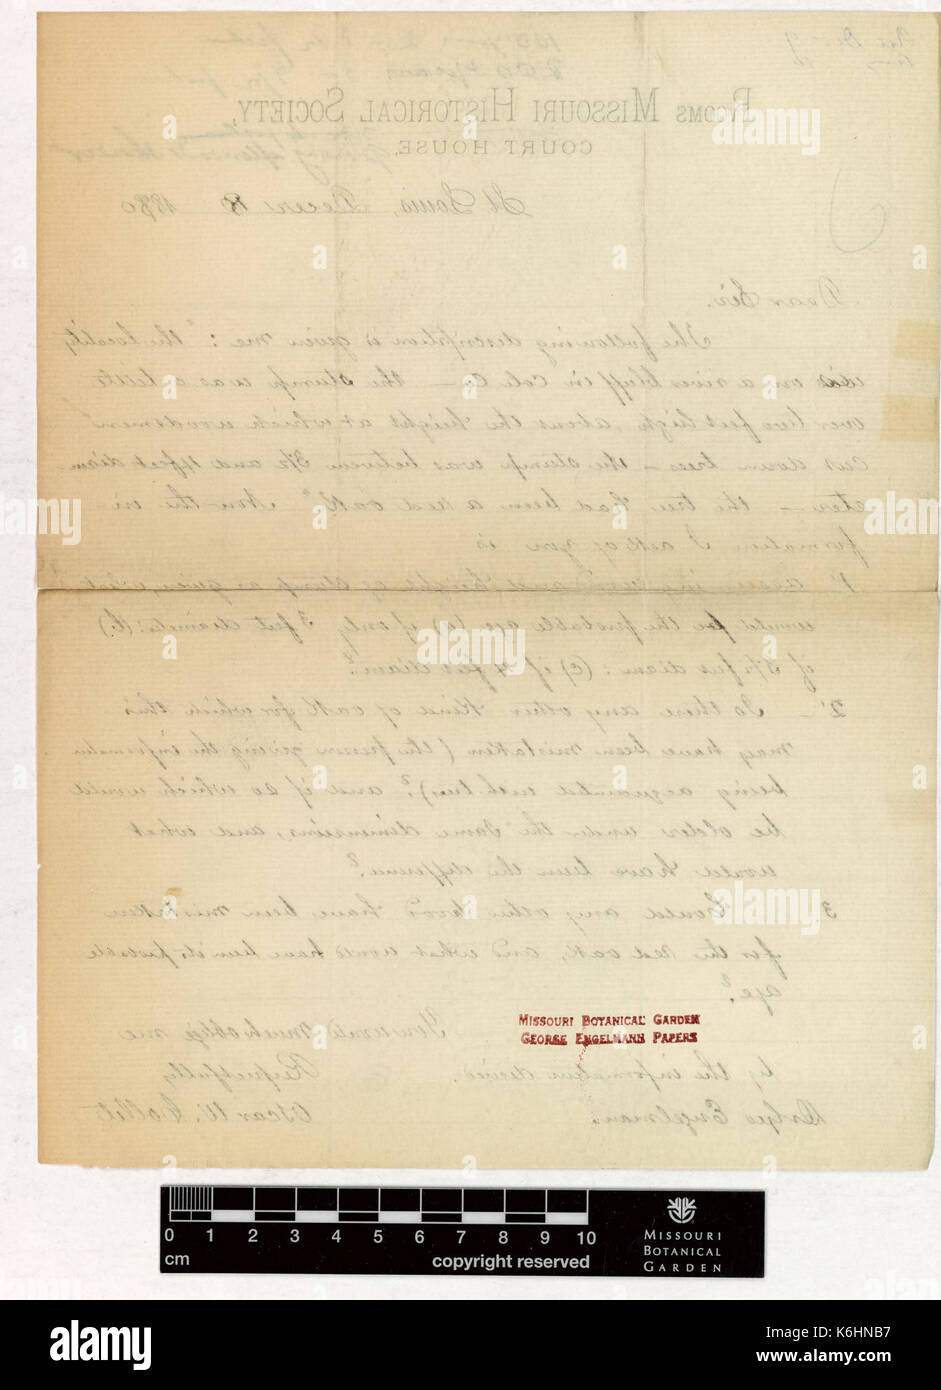 Rec Dec 9
ROOMS MISSOURI HISTORICAL SOCIETY,
COURT HOUSE.
St. Louis, Decem 8 1880
Dear Sir.
The following description is given me: "the locality
was on a river bluff in Cole Co — the stump was a little
over two feet high, about the height at which woodsmen
cut down trees — the stump was between 3½ and 4 feet diam
eter — the tree had been a red oak" Now the in
formation I ask of you is
1' assuming and height of stump as given, what
would be the probable age (a) if only 3 feet diameter (b)
if 3½ feet diam: (c) if 4 feet diam?
2' — Is there any other kind of oak for which this
may have been mistaken (the person giving the information
being acquainted with trees)? and if so which would
be older under the same dimensions, and what
would have been the difference?
3' Could any other wood have been mistaken
for the red oak, and what would have been its probable
age?
You would much oblige me
by the information desired.
Respectfully
Dr Geo Engelmann. Oscar W. Collet
MISSOURI BOTANICAL GARDEN
GEORGE ENGELMANN PAPERS
0 1 2 3 4 5 6 7 8 9 10
cm copyright reserved
MISSOURI
BOTANICAL
GARDEN
alamy
Image ID: K6HNB7
www.alamy.com